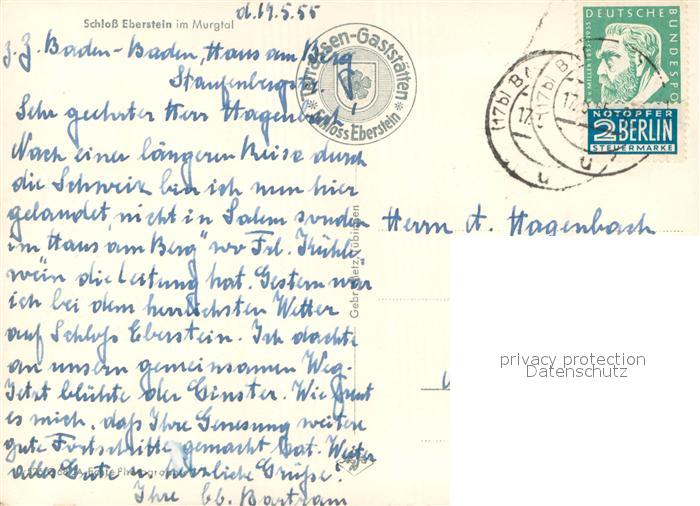 Schloß Eberstein im Murgtal
d. 19.5.55
z. Z. Baden-Baden, Haus am Berg
Staufenbergstr.
Terrassen-Gaststätten
Schloss Eberstein
Sehr geehrter Herr Hagenbach!
Nach einer längeren Reise durch
die Schweiz bin ich nun hier
gelandet, nicht in Salem sondern
im Haus "am Berg" wo Frl. Kühle-
wein die Leitung hat. Gestern war
ich bei dem herrlichsten Wetter
auf Schloß Eberstein. Ich dachte
an unsern gemeinsamen Weg.
Jetzt blühte der Ginster. Wie freut
es mich, daß Ihre Genesung weitere
gute Fortschritte gemacht hat. Weiter
alles Gute u. herzliche Grüße!
Ihre Bartram
Gebr. Metz, Tübingen
DEUTSCHE
BUNDESPOST
V. MILLER 1855-1955
NOTOPFER
2 BERLIN
STEUERMARKE
(17b)
(17b)
Herrn A. Hagenbach
privacy protection
Datenschutz